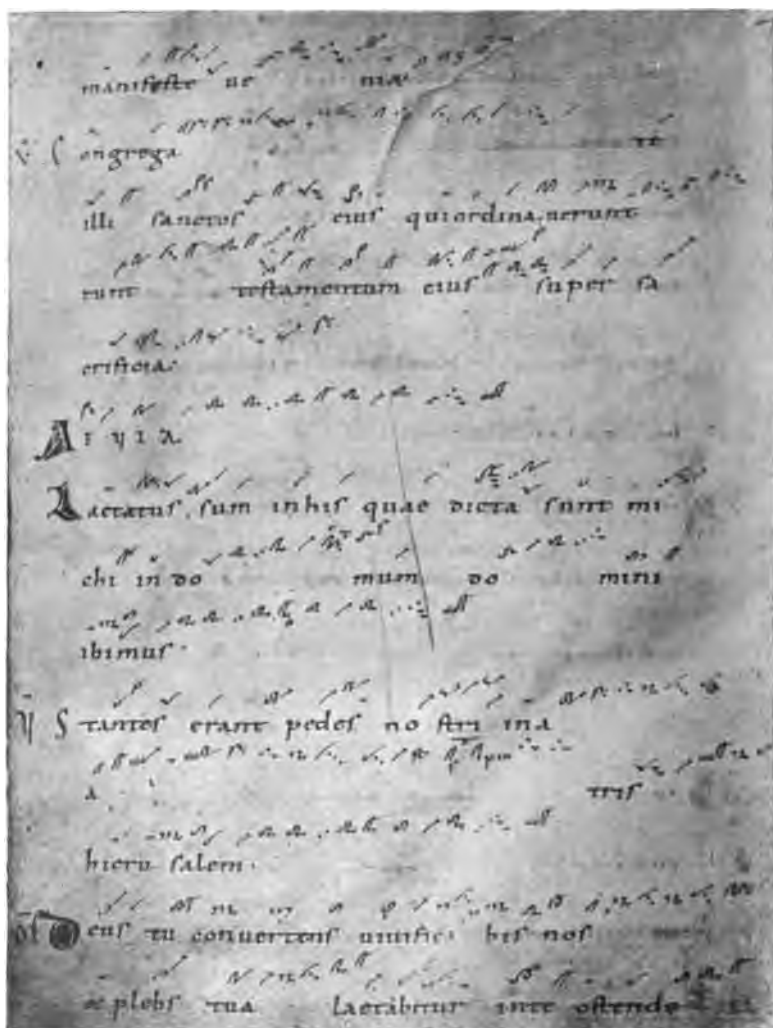 manifeste ue niæ
V Congrega te
illi sanctos eius qui ordina uerunt
runt testamentum eius super sa
crificia.
AE VIA
Laetatus sum in his quae dicta sunt mi
chi in do mum do mini
ibimus.
V Stantes erant pedes no stri in a
a triis
hieru salem.
Deus tu conuertens uiuifica bis nos
&plebs tua laetabitur inte ostende